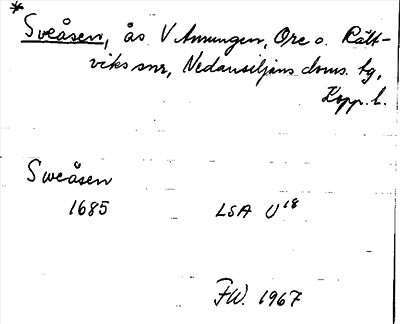 * Sveåsen, ås V Amungen, Ore o. Rätt-
viks snr, Nedansiljans doms. tg,
Kopp. l.
Sweåsen
1685 LSA U18
FW. 1967